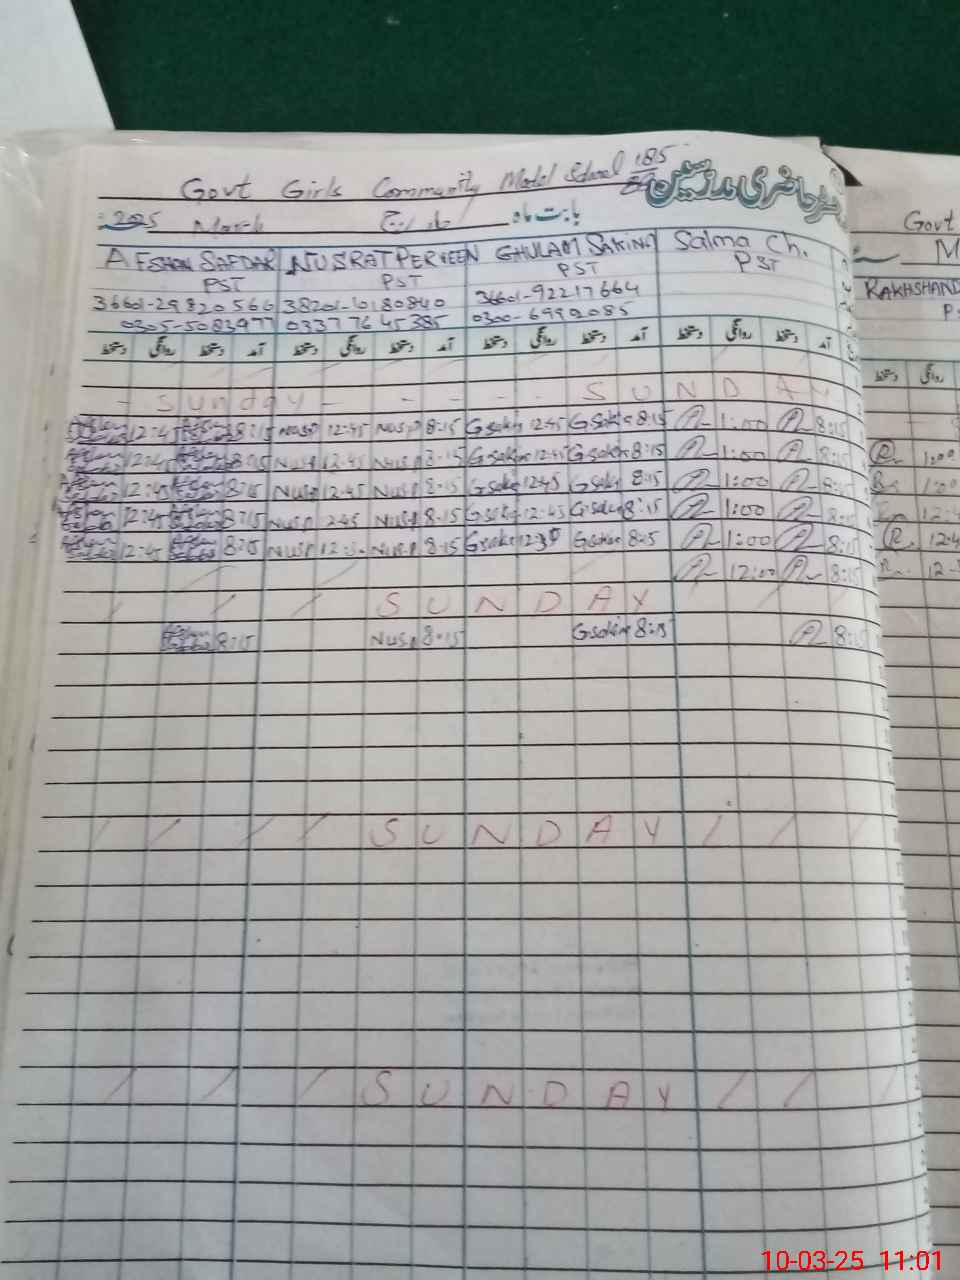 Govt Girls Community Model School 185
رجسٹر حاضری مدرسین
2025 March بابت ماہ
AFSHAN SAFDAR NUSRAT PERVEEN GHULAM SAKINA Salma Ch.
PST PST PST PST
36601-2982056 38201-10180840 36601-92217664
0305-5083977 0337 7645385 0300-6992085
دستخط روانگی دستخط آمد دستخط روانگی دستخط آمد دستخط روانگی دستخط آمد دستخط روانگی دستخط آمد
- Sunday - - - - SUNDAY
Afshan 12:45 Afshan 8:15 Nusp 12:45 Nusp 8:15 Gsakina 12:45 Gsakina 8:15 1:00 8:15
Afshan 12:45 Afshan 8:15 Nusp 12:45 Nusp 8:15 Gsakina 12:45 Gsakina 8:15 1:00 8:15
Afshan 12:45 Afshan 8:15 Nusp 12:45 Nusp 8:15 Gsakina 12:45 Gsakina 8:15 1:00 8:15
Afshan 12:45 Afshan 8:15 Nusp 12:45 Nusp 8:15 Gsakina 12:45 Gsakina 8:15 1:00 8:15
Afshan 12:45 Afshan 8:15 Nusp Nusp 8:15 Gsakina 12:30 Gsakina 8:15 1:00 8:15
12:00 8:15
/ / / SUNDAY
Afshan 8:15 Nusp 8:15 Gsakina 8:15 8:15
/ / / / SUNDAY / / /
/ / / SUNDAY / / /
Govt
M
RAKHSHAND
P
دستخط روانگی
1:00
1:00
12:4
12:4
12
10-03-25 11:01